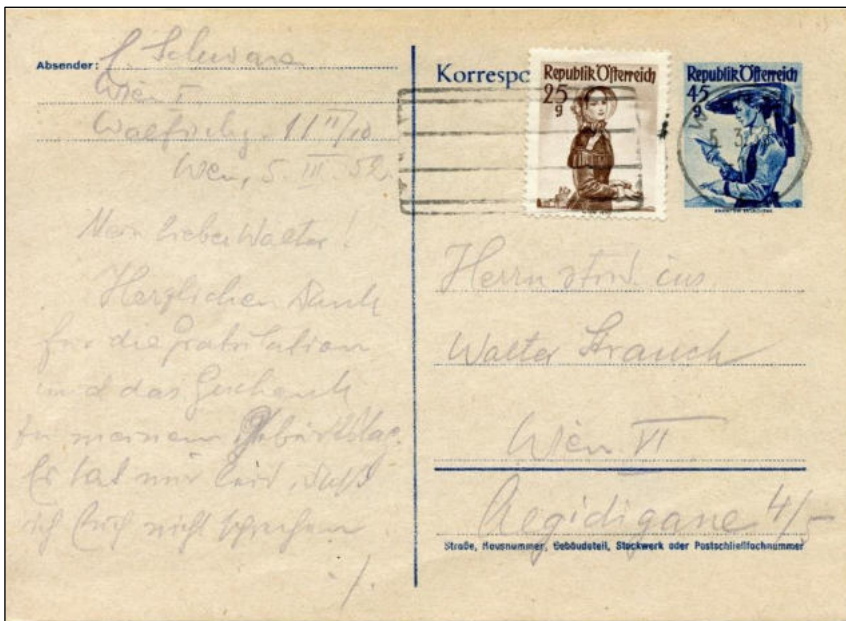 Absender: Schwarz
Wien I.
Walfischg. 11 II/10
Wien, 5. III. 52.
Mein lieber Walter!
Herzlichen Dank
für die Gratulation
und das Geschenk
zu meinem Geburtstag.
Es tat mir leid, daß
ich Euch nicht sprechen
./.
Korrespo
Republik Österreich
25
g
Republik Österreich
45
g
5. 3. 52
Herrn stud. ing.
Walter Strauch
Wien VI
Aegidigasse 4/5
Straße, Hausnummer, Gebäudeteil, Stockwerk oder Postschließfachnummer